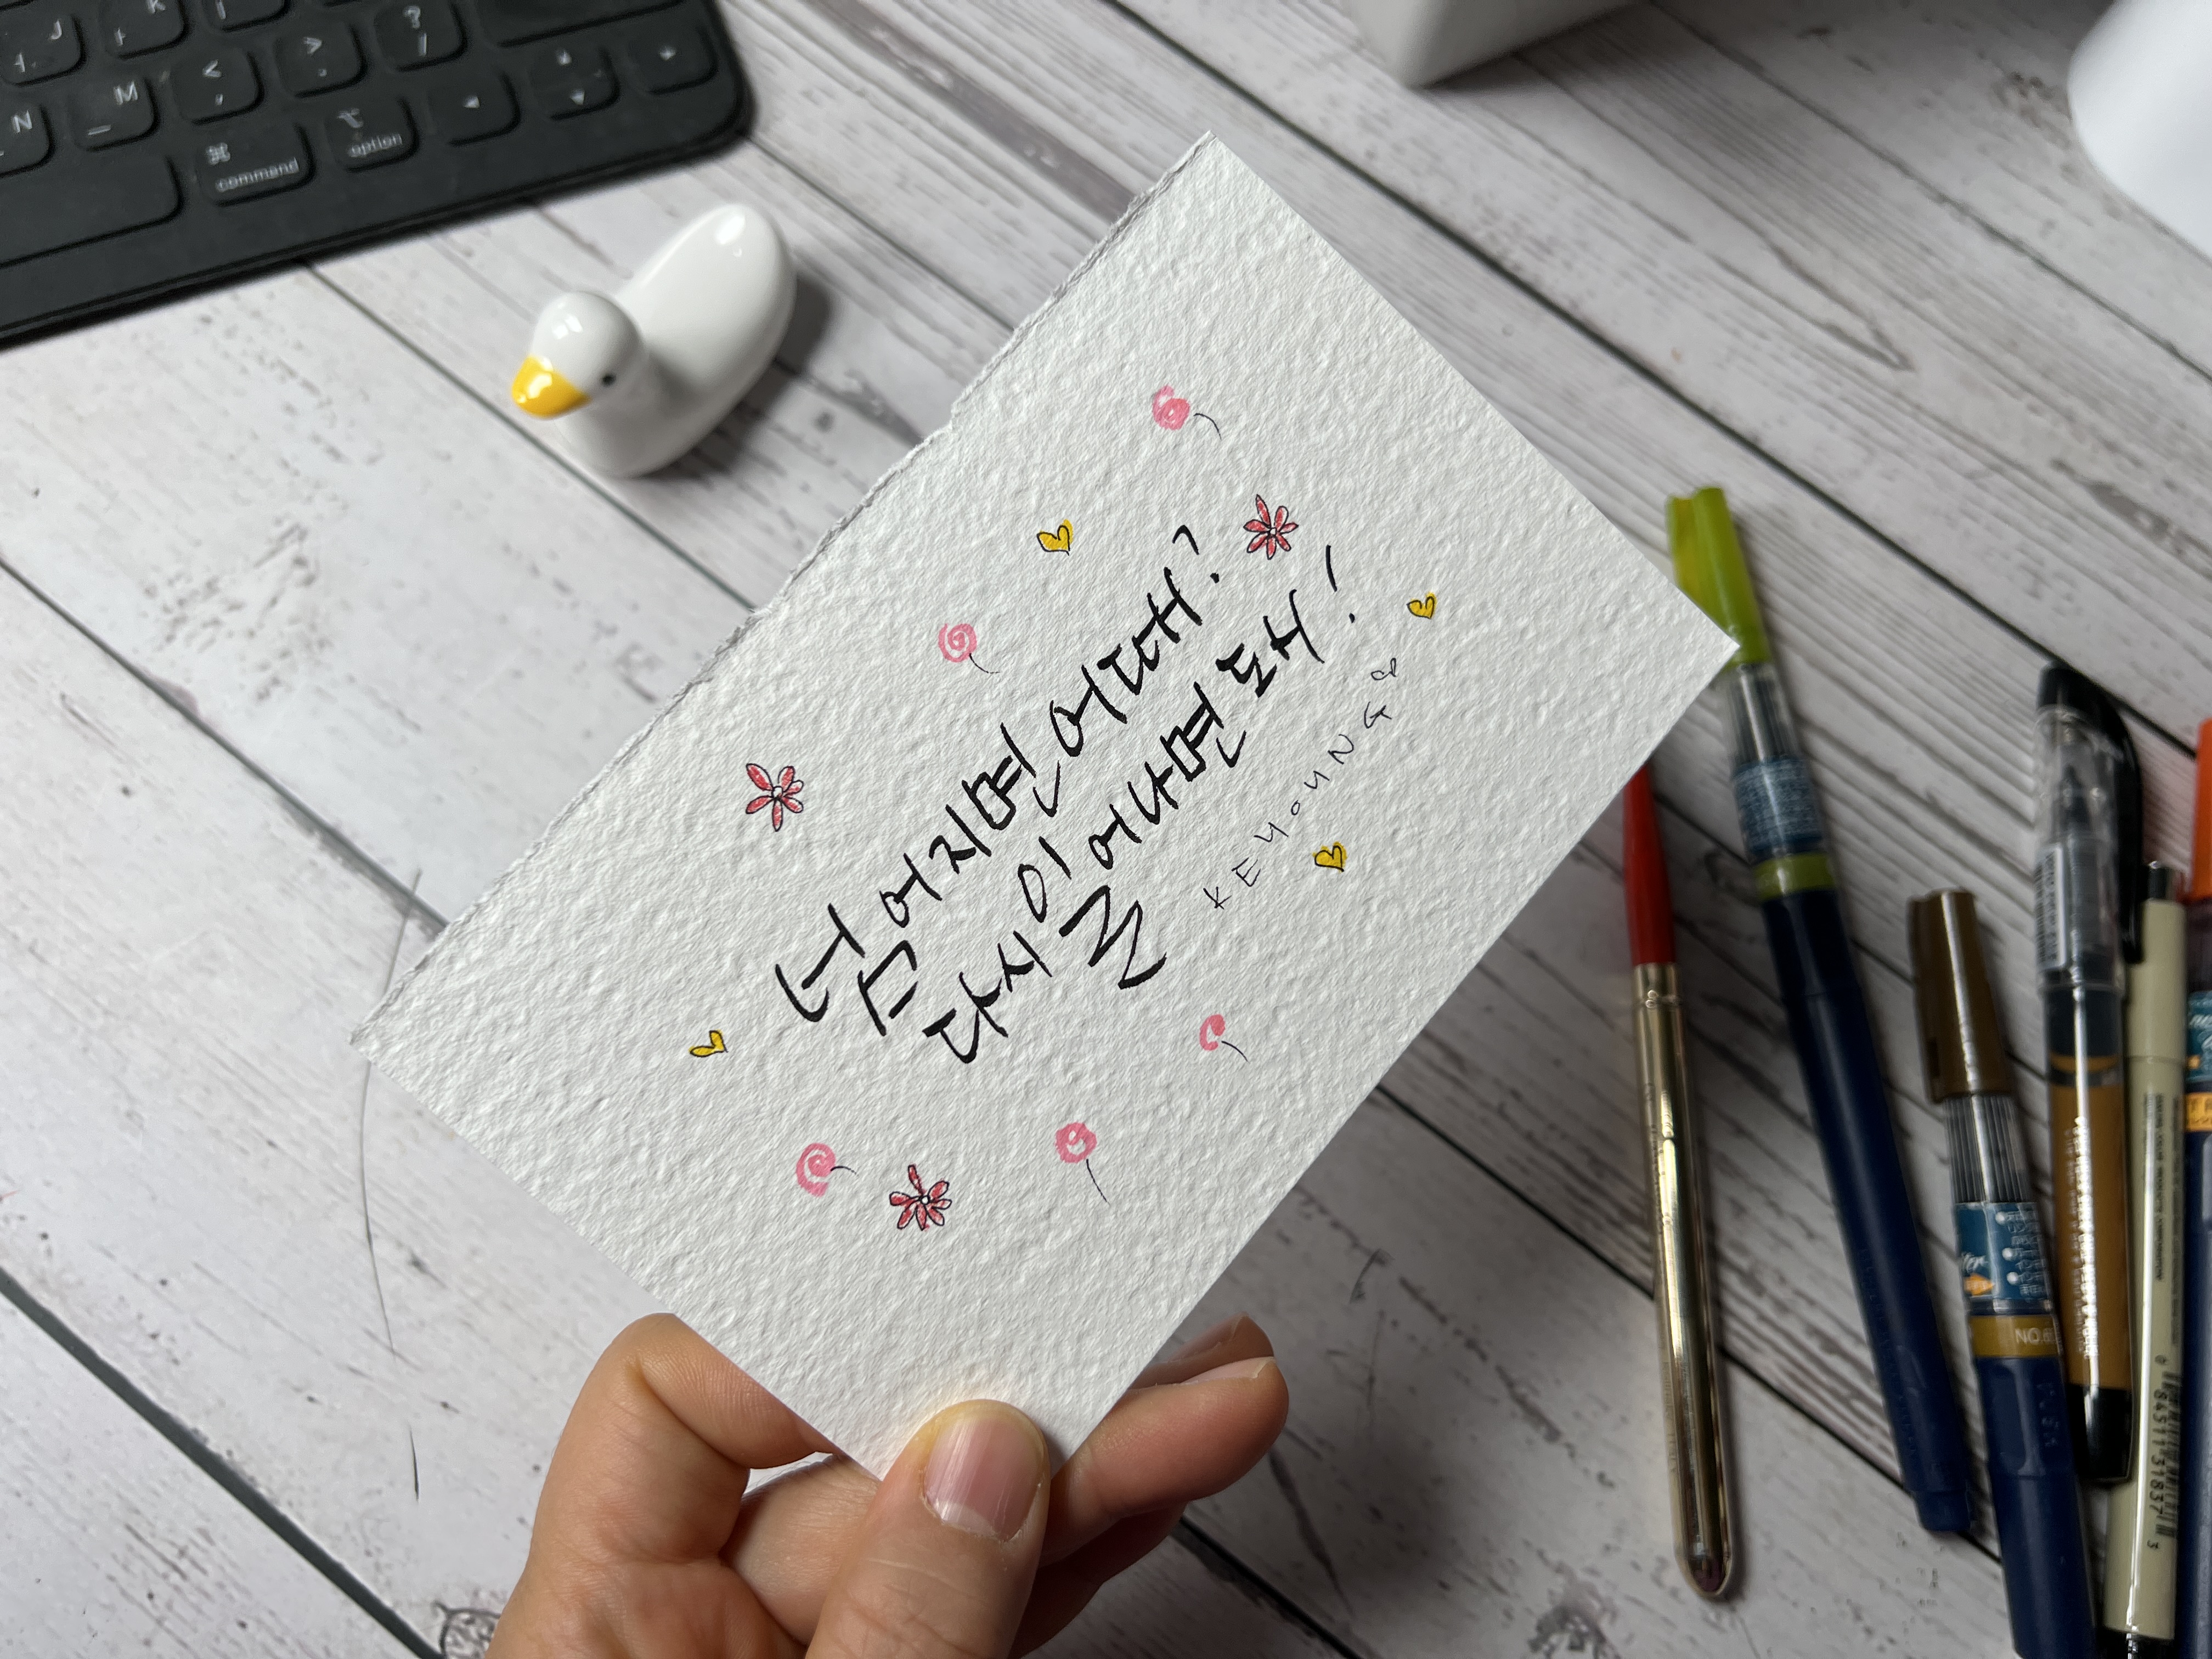 넘어지면 어때?
다시 일어나면 돼!
KEYOUNG
J
K
L
?
/
>
.
<
,
M
N
⌘
command
⌥
option